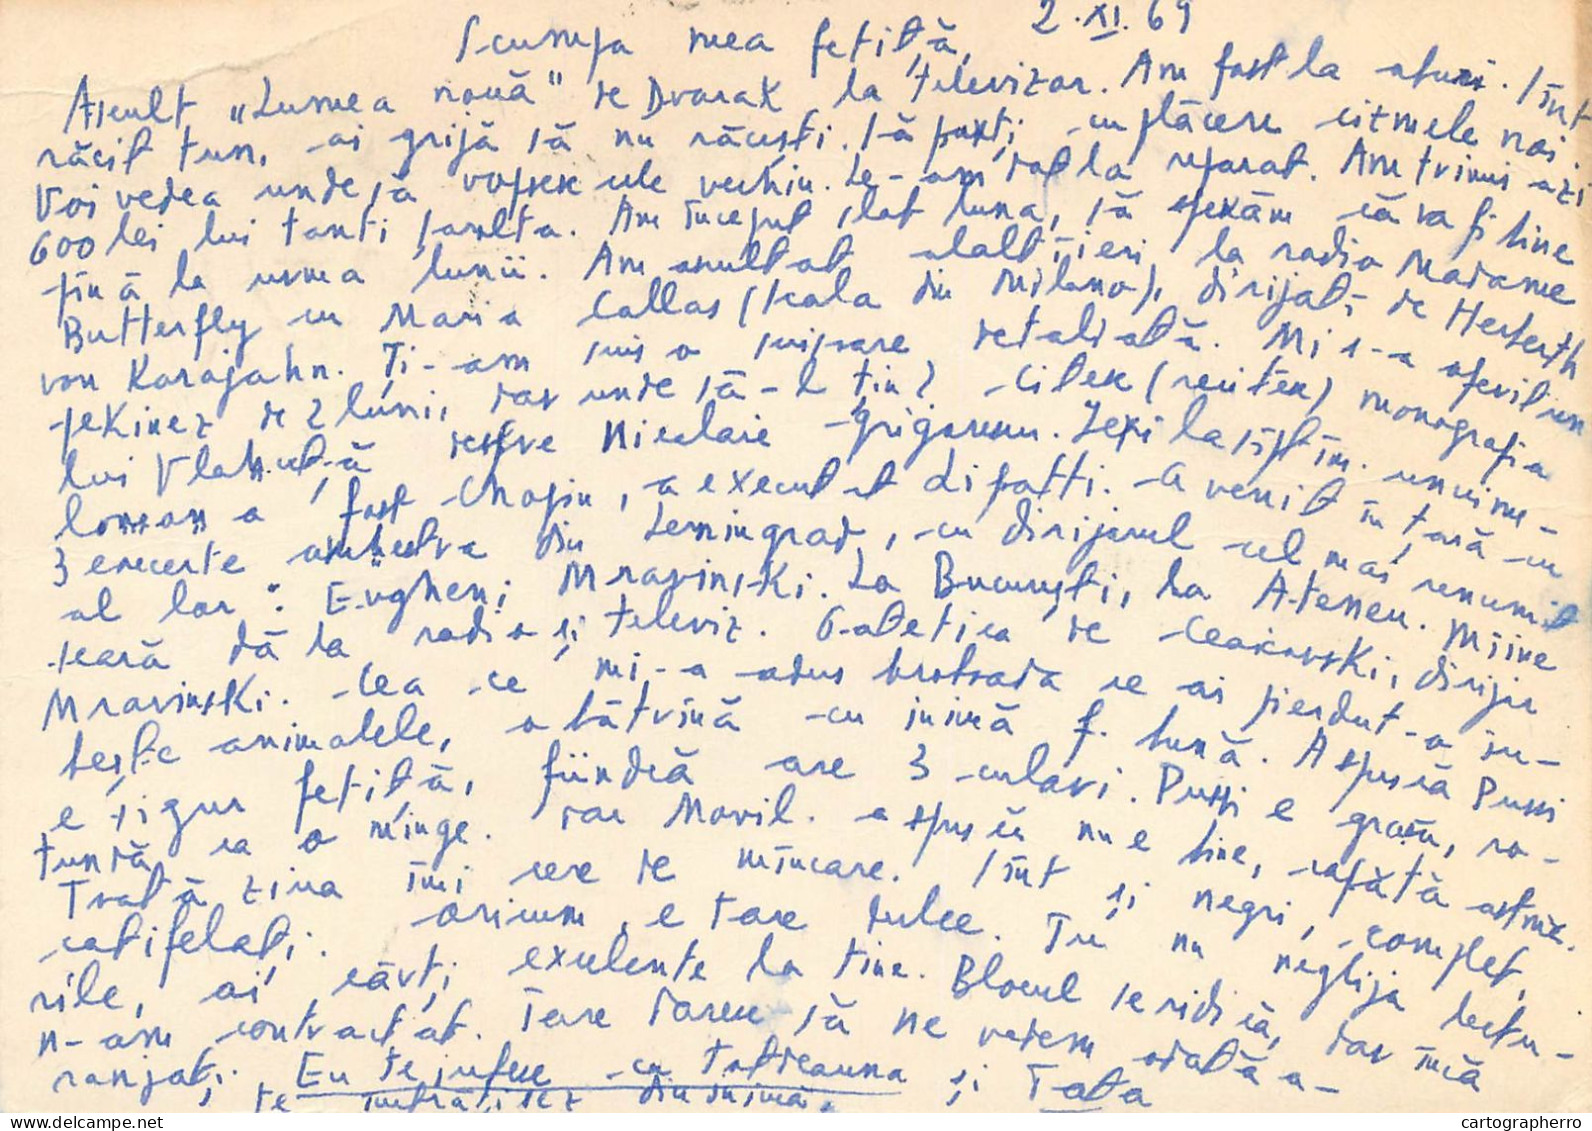 2.XI.69
Scumpa mea fetiță,
Ascult „Lumea nouă" de Dvorak la televizor. Am fost la atuni. Sînt
răcit tun, ai grijă să nu răcești. Să porți cu plăcere cizmele noi.
Voi vedea unde să vopsesc cele vechiu. Le-am dat la reparat. Am trimis azi
600 lei lui tanti. Am început slab luna, să sperăm că va fi bine
pînă la urma lunii. Am ascultat alaltăieri la radio Madame
Butterfly cu Maria Callas (Scala din Milano), dirijată de Herberth
von Karajahn. Ți-am scris o scrisoare detaliată. Mi s-a oferit un
pekinez de 2 luni, dar unde să-l țin? Citesc (recitesc) monografia
lui Vlahuță despre Nicolaie Grigorescu. Ieri la săpt. în.
a fost Chopin, a executat Lipatti. A venit în țară cu
3 concerte orchestra din Leningrad, cu dirijorul cel mai renumit
al lor: Evgheni Mravinski. La București, la Ateneu. Mîine
seară dă la radio și televiz. 6-a Patetica de Ceaicovski, dirijor
Mravinski. Cea ce mi-a adus brățara ce ai pierdut-o iu-
bește animalele, o bătrînă cu inimă f. bună. A spus că Pussi
e sigur fetiță, fiindcă are 3 culori. Pussi e grasă, ro-
tundă ca o minge. Dar Movil. a spus că nu e bine, capătă astmă.
Toată ziua îmi cere de mîncare. Sînt și negri, complet,
catifelați. Oricum, e tare dulce. Tu nu neglija lectu-
rile, ai cărți excelente la tine. Blocul se ridică, dar încă
n-am contractat. Tare doresc să ne vedem odată a-
ranjați. Eu te iubesc ca totdeauna și
te îmbrățișez din inimă, Tata
cartographerro